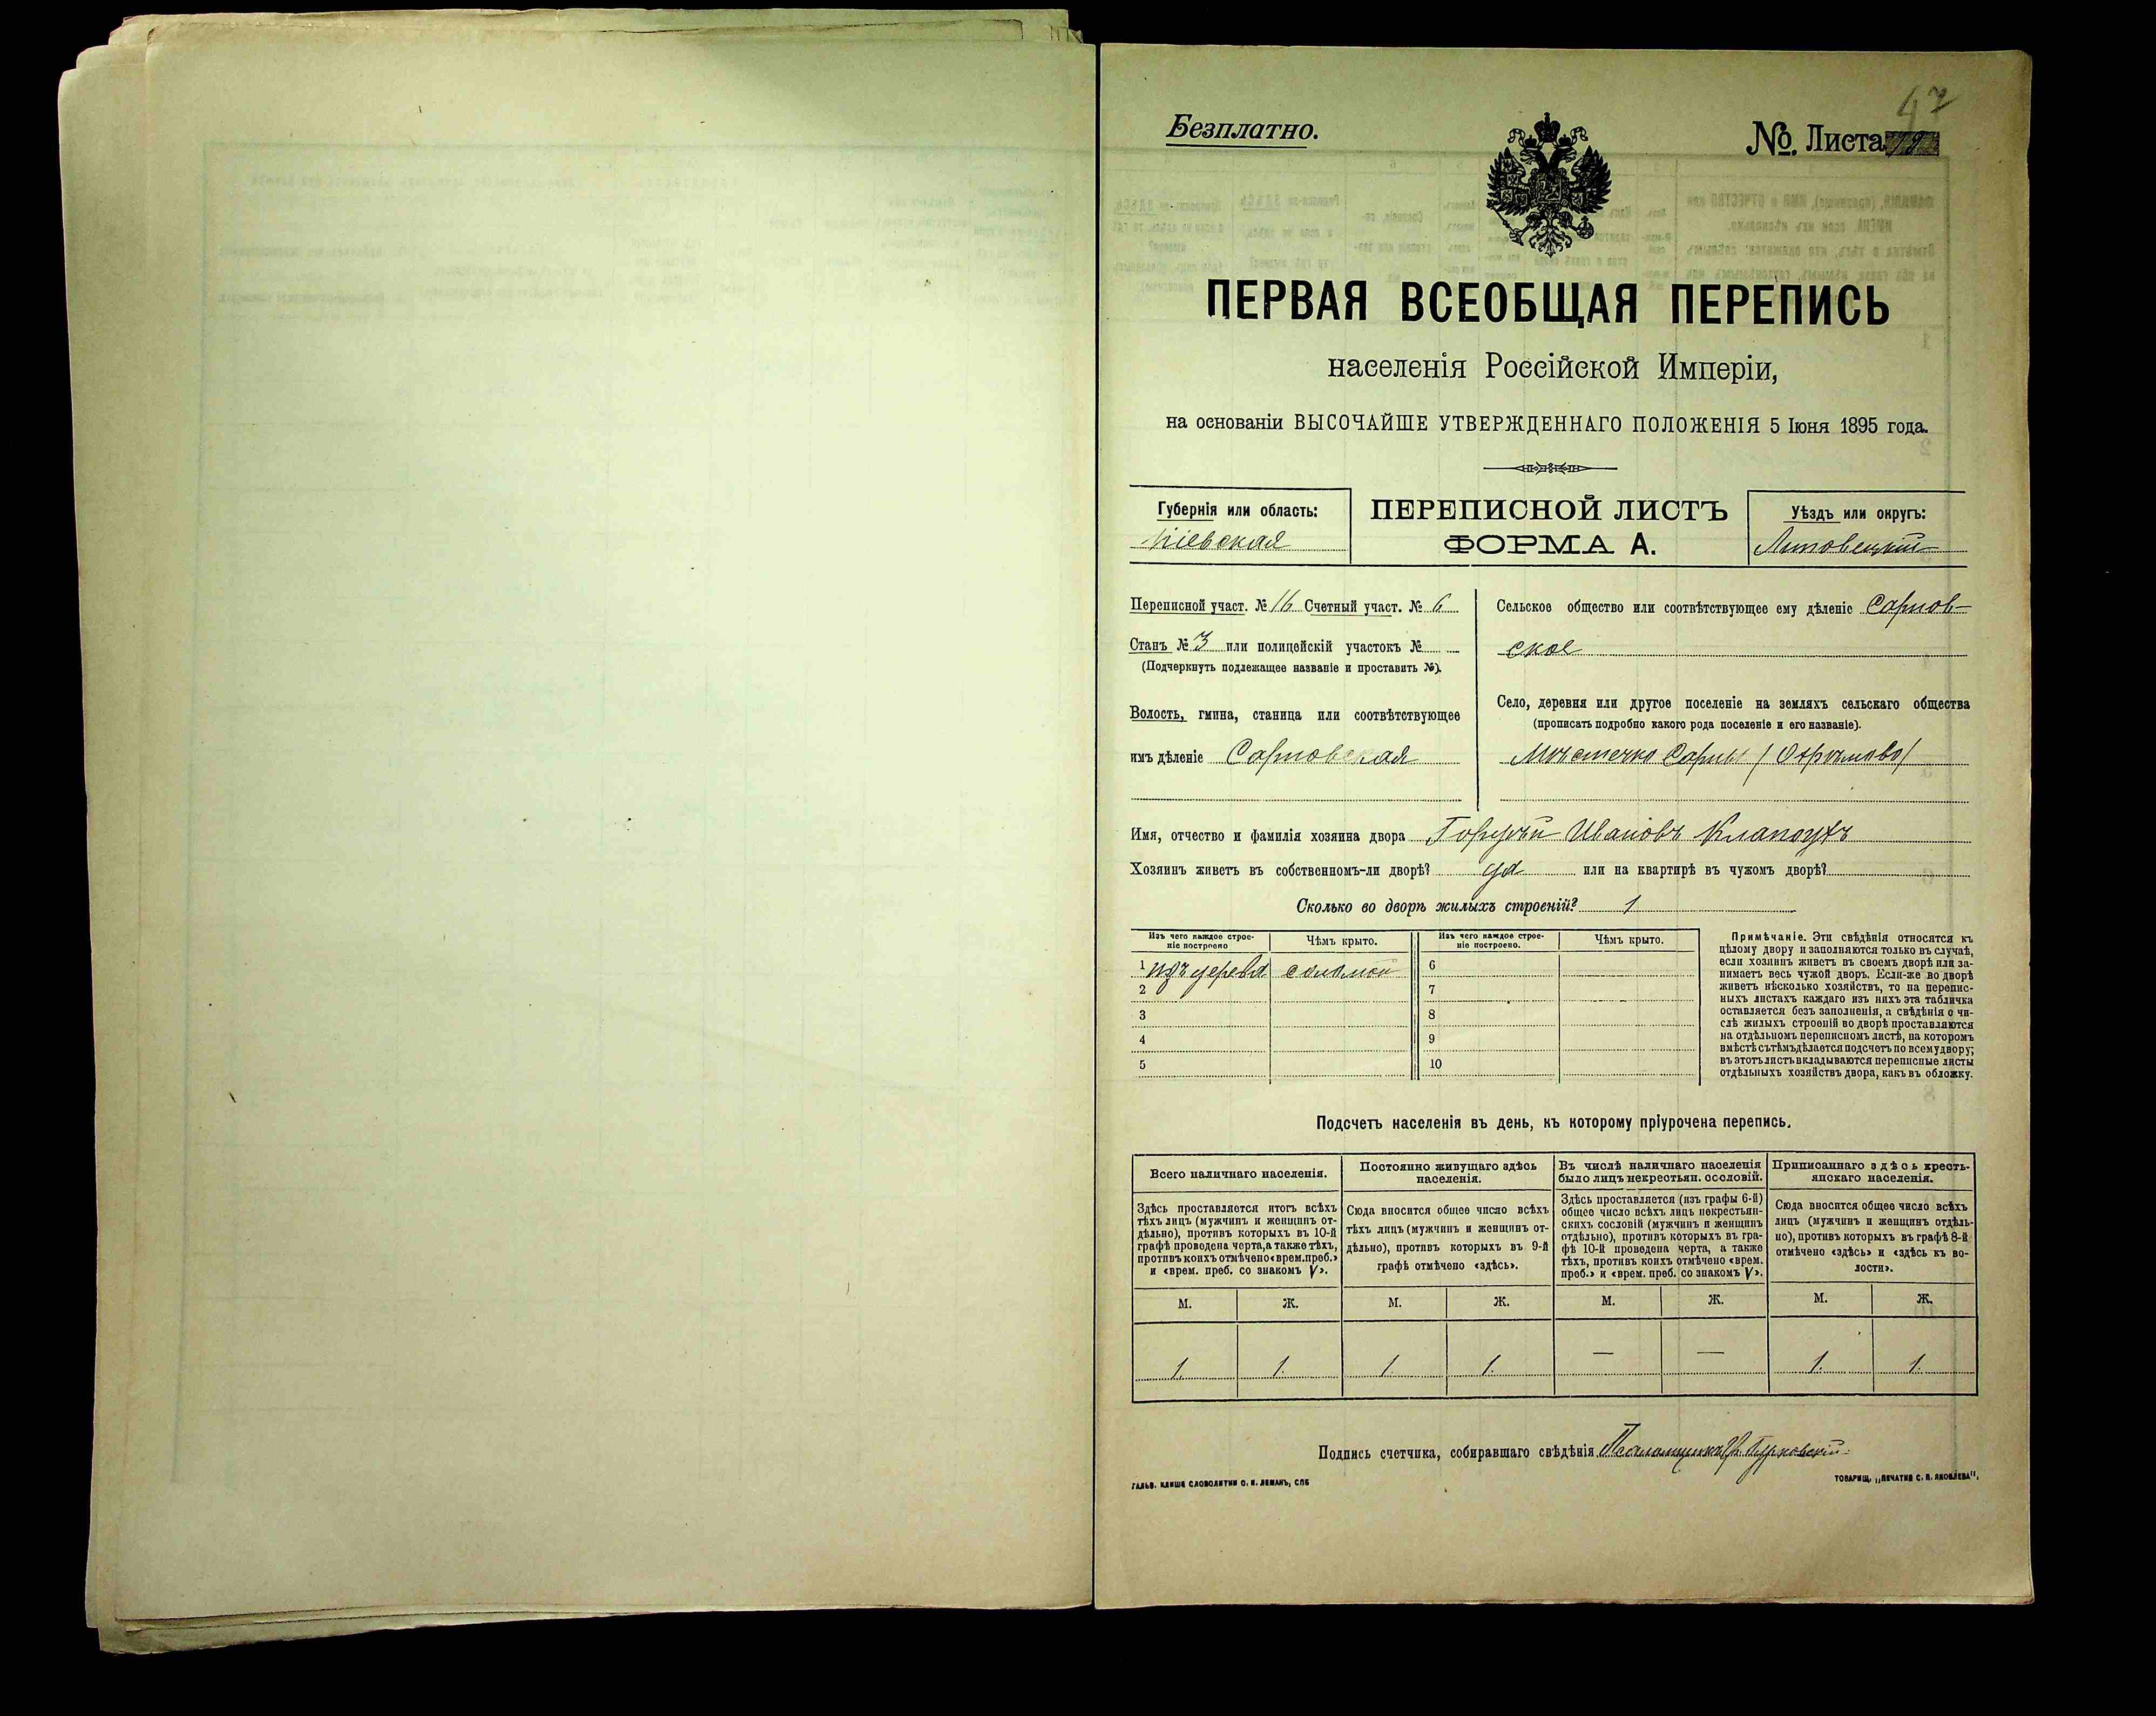 47
Безплатно.
№ Листа
ПЕРВАЯ ВСЕОБЩАЯ ПЕРЕПИСЬ
населенія Россійской Имперіи,
на основаніи ВЫСОЧАЙШЕ УТВЕРЖДЕННАГО ПОЛОЖЕНІЯ 5 Іюня 1895 года.
Губернія или область:
Кіевская
ПЕРЕПИСНОЙ ЛИСТЪ
ФОРМА А.
Уѣздъ или округъ:
Липовецкій
Переписной участ. № 16 Счетный участ. № 6
Станъ № 3 или полицейскій участокъ №
(Подчеркнуть подлежащее названіе и проставить №).
Волость, гмина, станица или соотвѣтствующее
имъ дѣленіе Сарновская
Сельское общество или соотвѣтствующее ему дѣленіе Сарнов-
ское
Село, деревня или другое поселеніе на земляхъ сельскаго общества
(прописать подробно какого рода поселеніе и его названіе).
Мѣстечко Сарны
Имя, отчество и фамилія хозяина двора Ивановъ Клапоухъ
Хозяинъ живетъ въ собственномъ-ли дворѣ? да или на квартирѣ въ чужомъ дворѣ?
Сколько во дворѣ жилыхъ строеній? 1
Изъ чего каждое строе-
ніе построено
Чѣмъ крыто.
Изъ чего каждое строе-
ніе построено.
Чѣмъ крыто.
1 изъ дерева соломой 6
2 7
3 8
4 9
5 10
Примѣчаніе. Эти свѣдѣнія относятся къ
цѣлому двору и заполняются только въ случаѣ,
если хозяинъ живетъ въ своемъ дворѣ или за-
нимаетъ весь чужой дворъ. Если-же во дворѣ
живетъ нѣсколько хозяйствъ, то на перепис-
ныхъ листахъ каждаго изъ нихъ эта табличка
оставляется безъ заполненія, а свѣдѣнія о чи-
слѣ жилыхъ строеній во дворѣ проставляются
на отдѣльномъ переписномъ листѣ, на которомъ
вмѣстѣ съ тѣмъ дѣлается подсчетъ по всему двору;
въ этотъ листъ вкладываются переписные листы
отдѣльныхъ хозяйствъ двора, какъ въ обложку.
Подсчетъ населенія въ день, къ которому пріурочена перепись.
Всего наличнаго населенія.
Постоянно живущаго здѣсь
населенія.
Въ числѣ наличнаго населенія
было лицъ некрестьян. сословій.
Приписаннаго здѣсь кресть-
янскаго населенія.
Здѣсь проставляется итогъ всѣхъ
тѣхъ лицъ (мужчинъ и женщинъ от-
дѣльно), противъ которыхъ въ 10-й
графѣ проведена черта, а также тѣхъ,
противъ коихъ отмѣчено «врем. преб.»
и «врем. преб. со знакомъ V».
Сюда вносится общее число всѣхъ
тѣхъ лицъ (мужчинъ и женщинъ от-
дѣльно), противъ которыхъ въ 9-й
графѣ отмѣчено «здѣсь».
Здѣсь проставляется (изъ графы 6-й)
общее число всѣхъ лицъ некрестьян-
скихъ сословій (мужчинъ и женщинъ
отдѣльно), противъ которыхъ въ гра-
фѣ 10-й проведена черта, а также
тѣхъ, противъ коихъ отмѣчено «врем.
преб.» и «врем. преб. со знакомъ V».
Сюда вносится общее число всѣхъ
лицъ (мужчинъ и женщинъ отдѣль-
но), противъ которыхъ въ графѣ 8-й
отмѣчено «здѣсь» и «здѣсь къ во-
лости».
М. Ж. М. Ж. М. Ж. М. Ж.
1. 1. 1. 1. — — 1. 1.
Подпись счетчика, собиравшаго свѣдѣнія
ГАЛЬВ. КЛИШЕ СЛОВОЛИТНИ О. И. ЛЕМАНЪ, СПБ
ТОВАРИЩ. „ПЕЧАТНЯ С. П. ЯКОВЛЕВА".